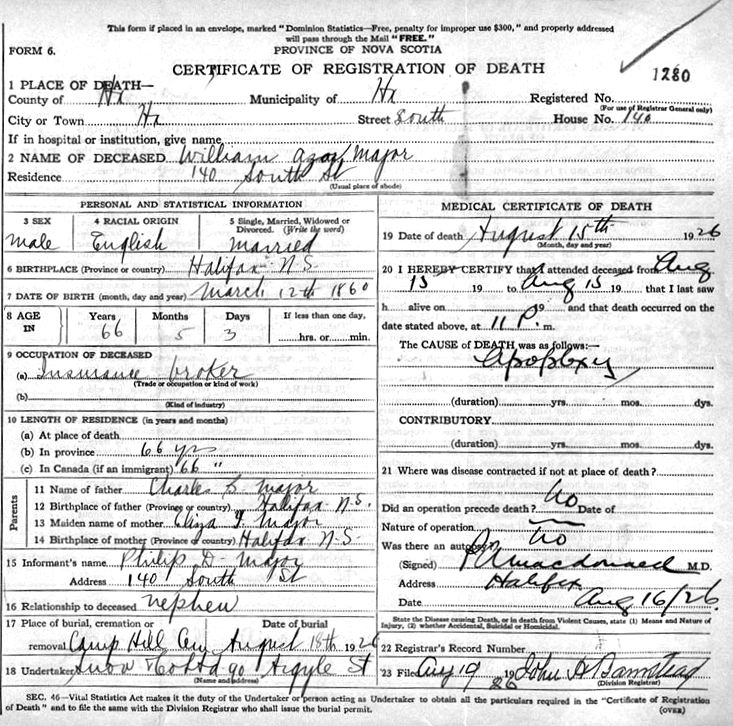 This form if placed in an envelope, marked "Dominion Statistics—Free, penalty for improper use $300," and properly addressed
will pass through the Mail "FREE."
FORM 6.
PROVINCE OF NOVA SCOTIA
CERTIFICATE OF REGISTRATION OF DEATH
1280
1 PLACE OF DEATH—
County of Hx Municipality of Hx Registered No.
(For use of Registrar General only)
City or Town Hx Street South House No. 140
If in hospital or institution, give name
2 NAME OF DECEASED William Major
Residence 140 South St
(Usual place of abode)
PERSONAL AND STATISTICAL INFORMATION
3 SEX 4 RACIAL ORIGIN 5 Single, Married, Widowed or
Divorced. (Write the word)
Male English Married
6 BIRTHPLACE (Province or country) Halifax N.S
7 DATE OF BIRTH (month, day and year) March 12th 1860
8 AGE IN Years Months Days If less than one day,
66 5 3 hrs. or min.
9 OCCUPATION OF DECEASED
(a) Insurance broker
(Trade or occupation or kind of work)
(b)
(Kind of industry)
10 LENGTH OF RESIDENCE (in years and months)
(a) At place of death
(b) In province 66 yrs
(c) In Canada (if an immigrant) 66 "
Parents
11 Name of father Charles S. Major
12 Birthplace of father (Province or country) Halifax N.S.
13 Maiden name of mother Eliza Major
14 Birthplace of mother (Province or country) Halifax N.S.
15 Informant's name Philip D. Major
Address 140 South St
16 Relationship to deceased nephew
17 Place of burial, cremation or Date of burial
removal Camp Hill Cem August 18th 1926
18 Undertaker Snow & Co Ltd 90 Argyle St
(Name and address)
MEDICAL CERTIFICATE OF DEATH
19 Date of death August 15th 1926
(Month, day and year)
20 I HEREBY CERTIFY that I attended deceased from Aug
13 19 to Aug 15 19 that I last saw
h alive on 19 and that death occurred on the
date stated above, at 11 P. m.
The CAUSE of DEATH was as follows:—
Apoplexy
(duration) yrs. mos. dys.
CONTRIBUTORY
(duration) yrs. mos. dys.
21 Where was disease contracted if not at place of death?
Did an operation precede death? No Date of
Nature of operation
Was there an autopsy No
(Signed) Macdonald M.D.
Address Halifax
Date Aug 16/26.
State the Disease causing Death, or in death from Violent Causes, state (1) Means and Nature of
Injury, (2) whether Accidental, Suicidal or Homicidal.
22 Registrar's Record Number
23 Filed Aug 19 1926 John H Barnstead
(Division Registrar)
SEC. 46—Vital Statistics Act makes it the duty of the Undertaker or person acting as Undertaker to obtain all the particulars required in the "Certificate of Registration
of Death" and to file the same with the Division Registrar who shall issue the burial permit.
(OVER)